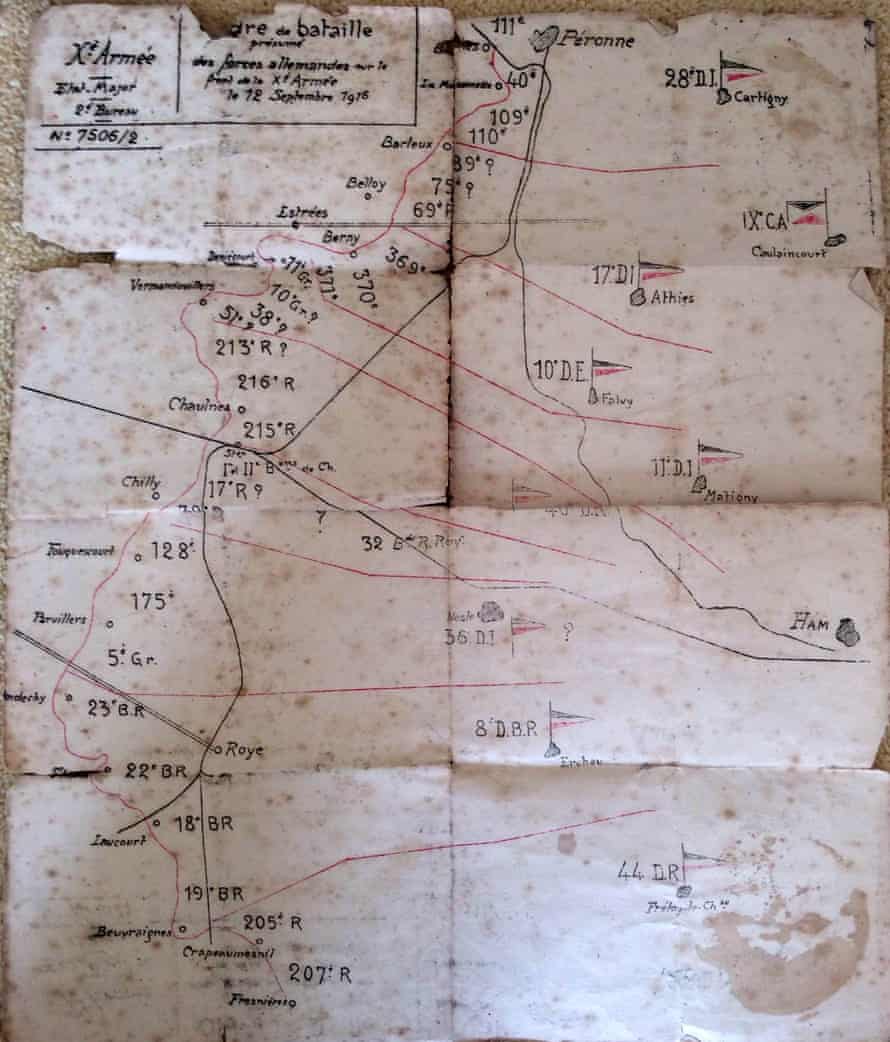 Xe Armée
Etat-Major
2e Bureau
No 7506/2.
dre de bataille
présumé
des forces allemandes sur le
front de la Xe Armée
le 12 Septembre 1916
111e
Péronne
La Maisonnette
40e
28e D.I.
Cartigny
109e
110e
Barleux
89e ?
75e ?
Belloy
69e R
Estrées
IXe C.A
Caulaincourt
Berny
369e
Deniécourt
11e Gr.
371e
370e
17e D.I
Athies
Vermandovillers
10e Gr. ?
51e ?
38e ?
213e R ?
10e D.E.
Falvy
216e R
Chaulnes
215e R
Ier II e Bons de Ch.
11e D.I
Matigny
Chilly
17e R ?
46e D.R
?
32 Bde R. Rav.
Fouquescourt
128e
175e
Parvillers
Nesle
36 D.I
?
HAM
5e Gr.
ndechy
23e B.R
8e D.B.R
Ercheu
Roye
22e BR
18e BR
Laucourt
44 D.R
19e BR
Beuvraignes
205e R
Crapeaumesnil
207e R
Fresnières